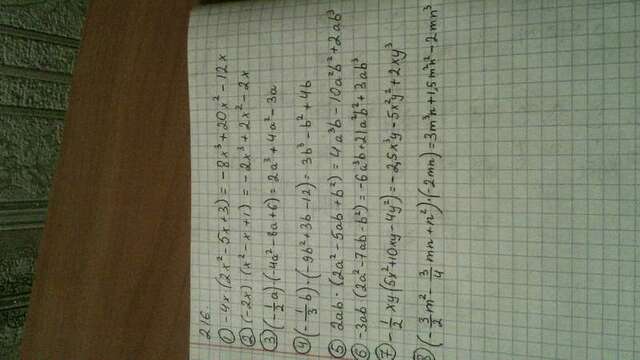 216.
① -4x (2x² - 5x + 3) = -8x³ + 20x² - 12x
② (-2x) · (x² - x + 1) = -2x³ + 2x² - 2x
③ (-1/2 a) · (-4a² - 8a + 6) = 2a³ + 4a² - 3a
④ (-1/3 b) · (-9b² + 3b - 12) = 3b³ - b² + 4b
⑤ 2ab · (2a² - 5ab + b²) = 4a³b - 10a²b² + 2ab³
⑥ -3ab (2a² - 7ab - b²) = -6a³b + 21a²b² + 3ab³
⑦ -1/2 xy (5x² + 10xy - 4y²) = -2,5x³y - 5x²y² + 2xy³
⑧ (-3/2 m² - 3/4 mn + n²) · (-2mn) = 3m³n + 1,5m²n² - 2mn³